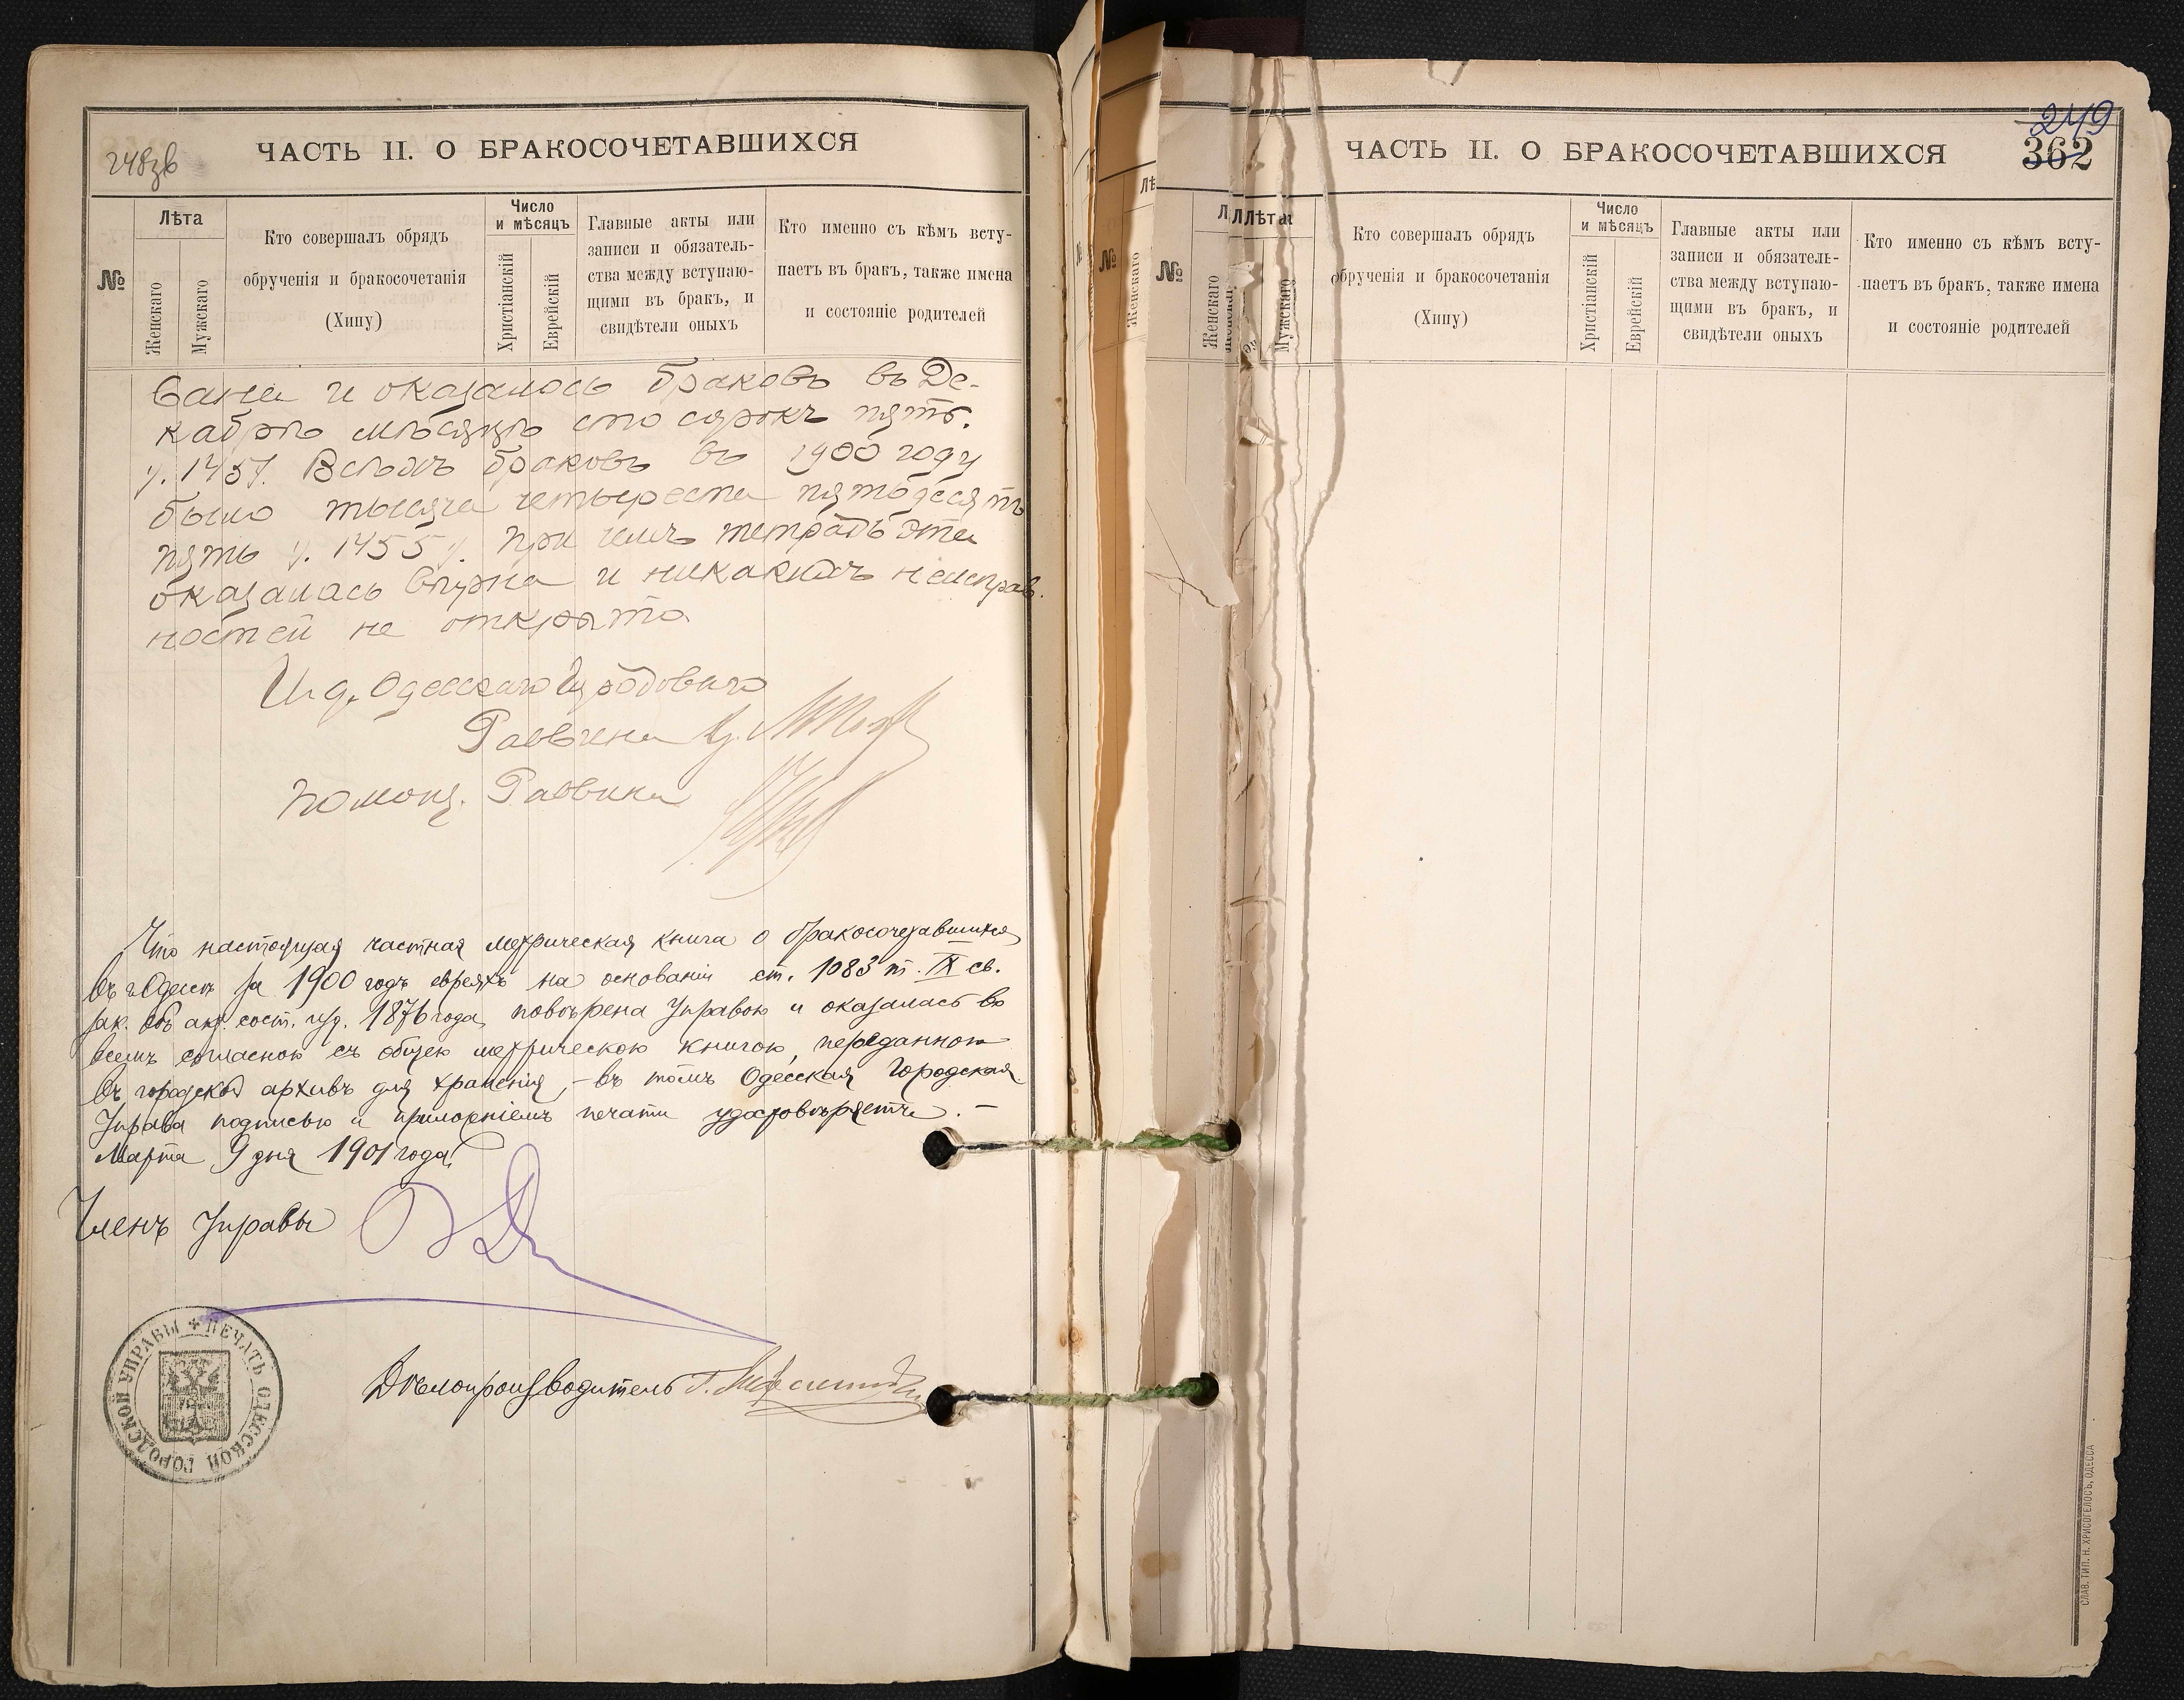 248зв
ЧАСТЬ II. О БРАКОСОЧЕТАВШИХСЯ
№
Лѣта
Женскаго
Мужскаго
Кто совершалъ обрядъ
обрученія и бракосочетанія
(Хипу)
Число
и мѣсяцъ
Христіанскій
Еврейскій
Главные акты или
записи и обязатель-
ства между вступаю-
щими въ бракъ, и
свидѣтели оныхъ
Кто именно съ кѣмъ всту-
паетъ въ бракъ, также имена
и состояніе родителей
вана и оказалось браковъ въ Де-
кабрѣ мѣсяцѣ сто сорокъ пять.
Всѣхъ браковъ въ 1900 году
было тысяча четыреста пятьдесятъ
пять 1455 при чемъ тетрадь эта
оказалась вѣрна и никакихъ неисправ-
ностей не открыто
И. д. Одесскаго Городоваго
Раввина
Помощ. Раввина
Что настоящая частная метрическая книга о бракосочетавшихся
въ г. Одессѣ за 1900 годъ евреяхъ на основаніи ст. 1083 т. IX св.
зак. объ акт. сост. изд. 1876 года, повѣрена Управою и оказалась во
всемъ согласною съ общею метрическою книгою, переданною
въ городской архивъ для храненія, – въ томъ Одесская Городская
Управа подписью и приложеніемъ печати удостовѣряетъ. –
Марта 9 дня 1901 года.
Членъ Управы
Дѣлопроизводитель
ПЕЧАТЬ ОДЕССКОЙ ГОРОДСКОЙ УПРАВЫ
№
Женскаго
№
Женскаго
249
362
ЧАСТЬ II. О БРАКОСОЧЕТАВШИХСЯ
Лѣта
Мужскаго
Кто совершалъ обрядъ
обрученія и бракосочетанія
(Хипу)
Число
и мѣсяцъ
Христіанскій
Еврейскій
Главные акты или
записи и обязатель-
ства между вступаю-
щими въ бракъ, и
свидѣтели оныхъ
Кто именно съ кѣмъ всту-
паетъ въ бракъ, также имена
и состояніе родителей
СЛАВ. ТИП. Н. ХРИСОГЕЛОСЪ, ОДЕССА